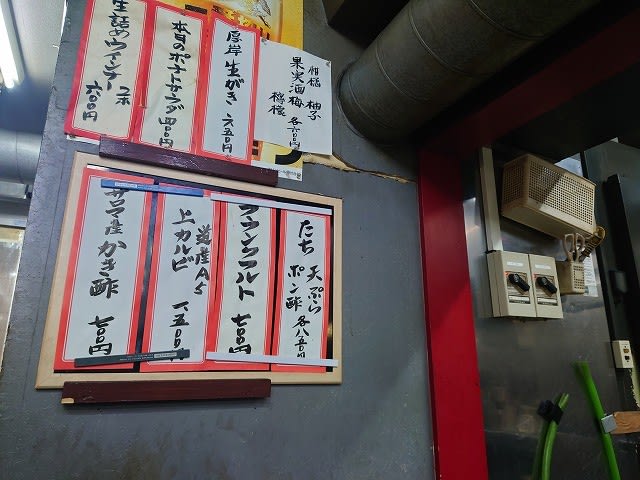 柑橘 柚子
果実酒 梅 各六〇〇円
檸檬
厚岸生がき 六五〇円
本日のポテトサラダ 四〇〇円
生詰めウインナー 2ホ 六〇〇円
たち 天ぷら ポン酢 各八五〇円
フランクフルト 七〇〇円
道産A5
上カルビ 一五〇〇
サロマ産かき酢 七〇〇円